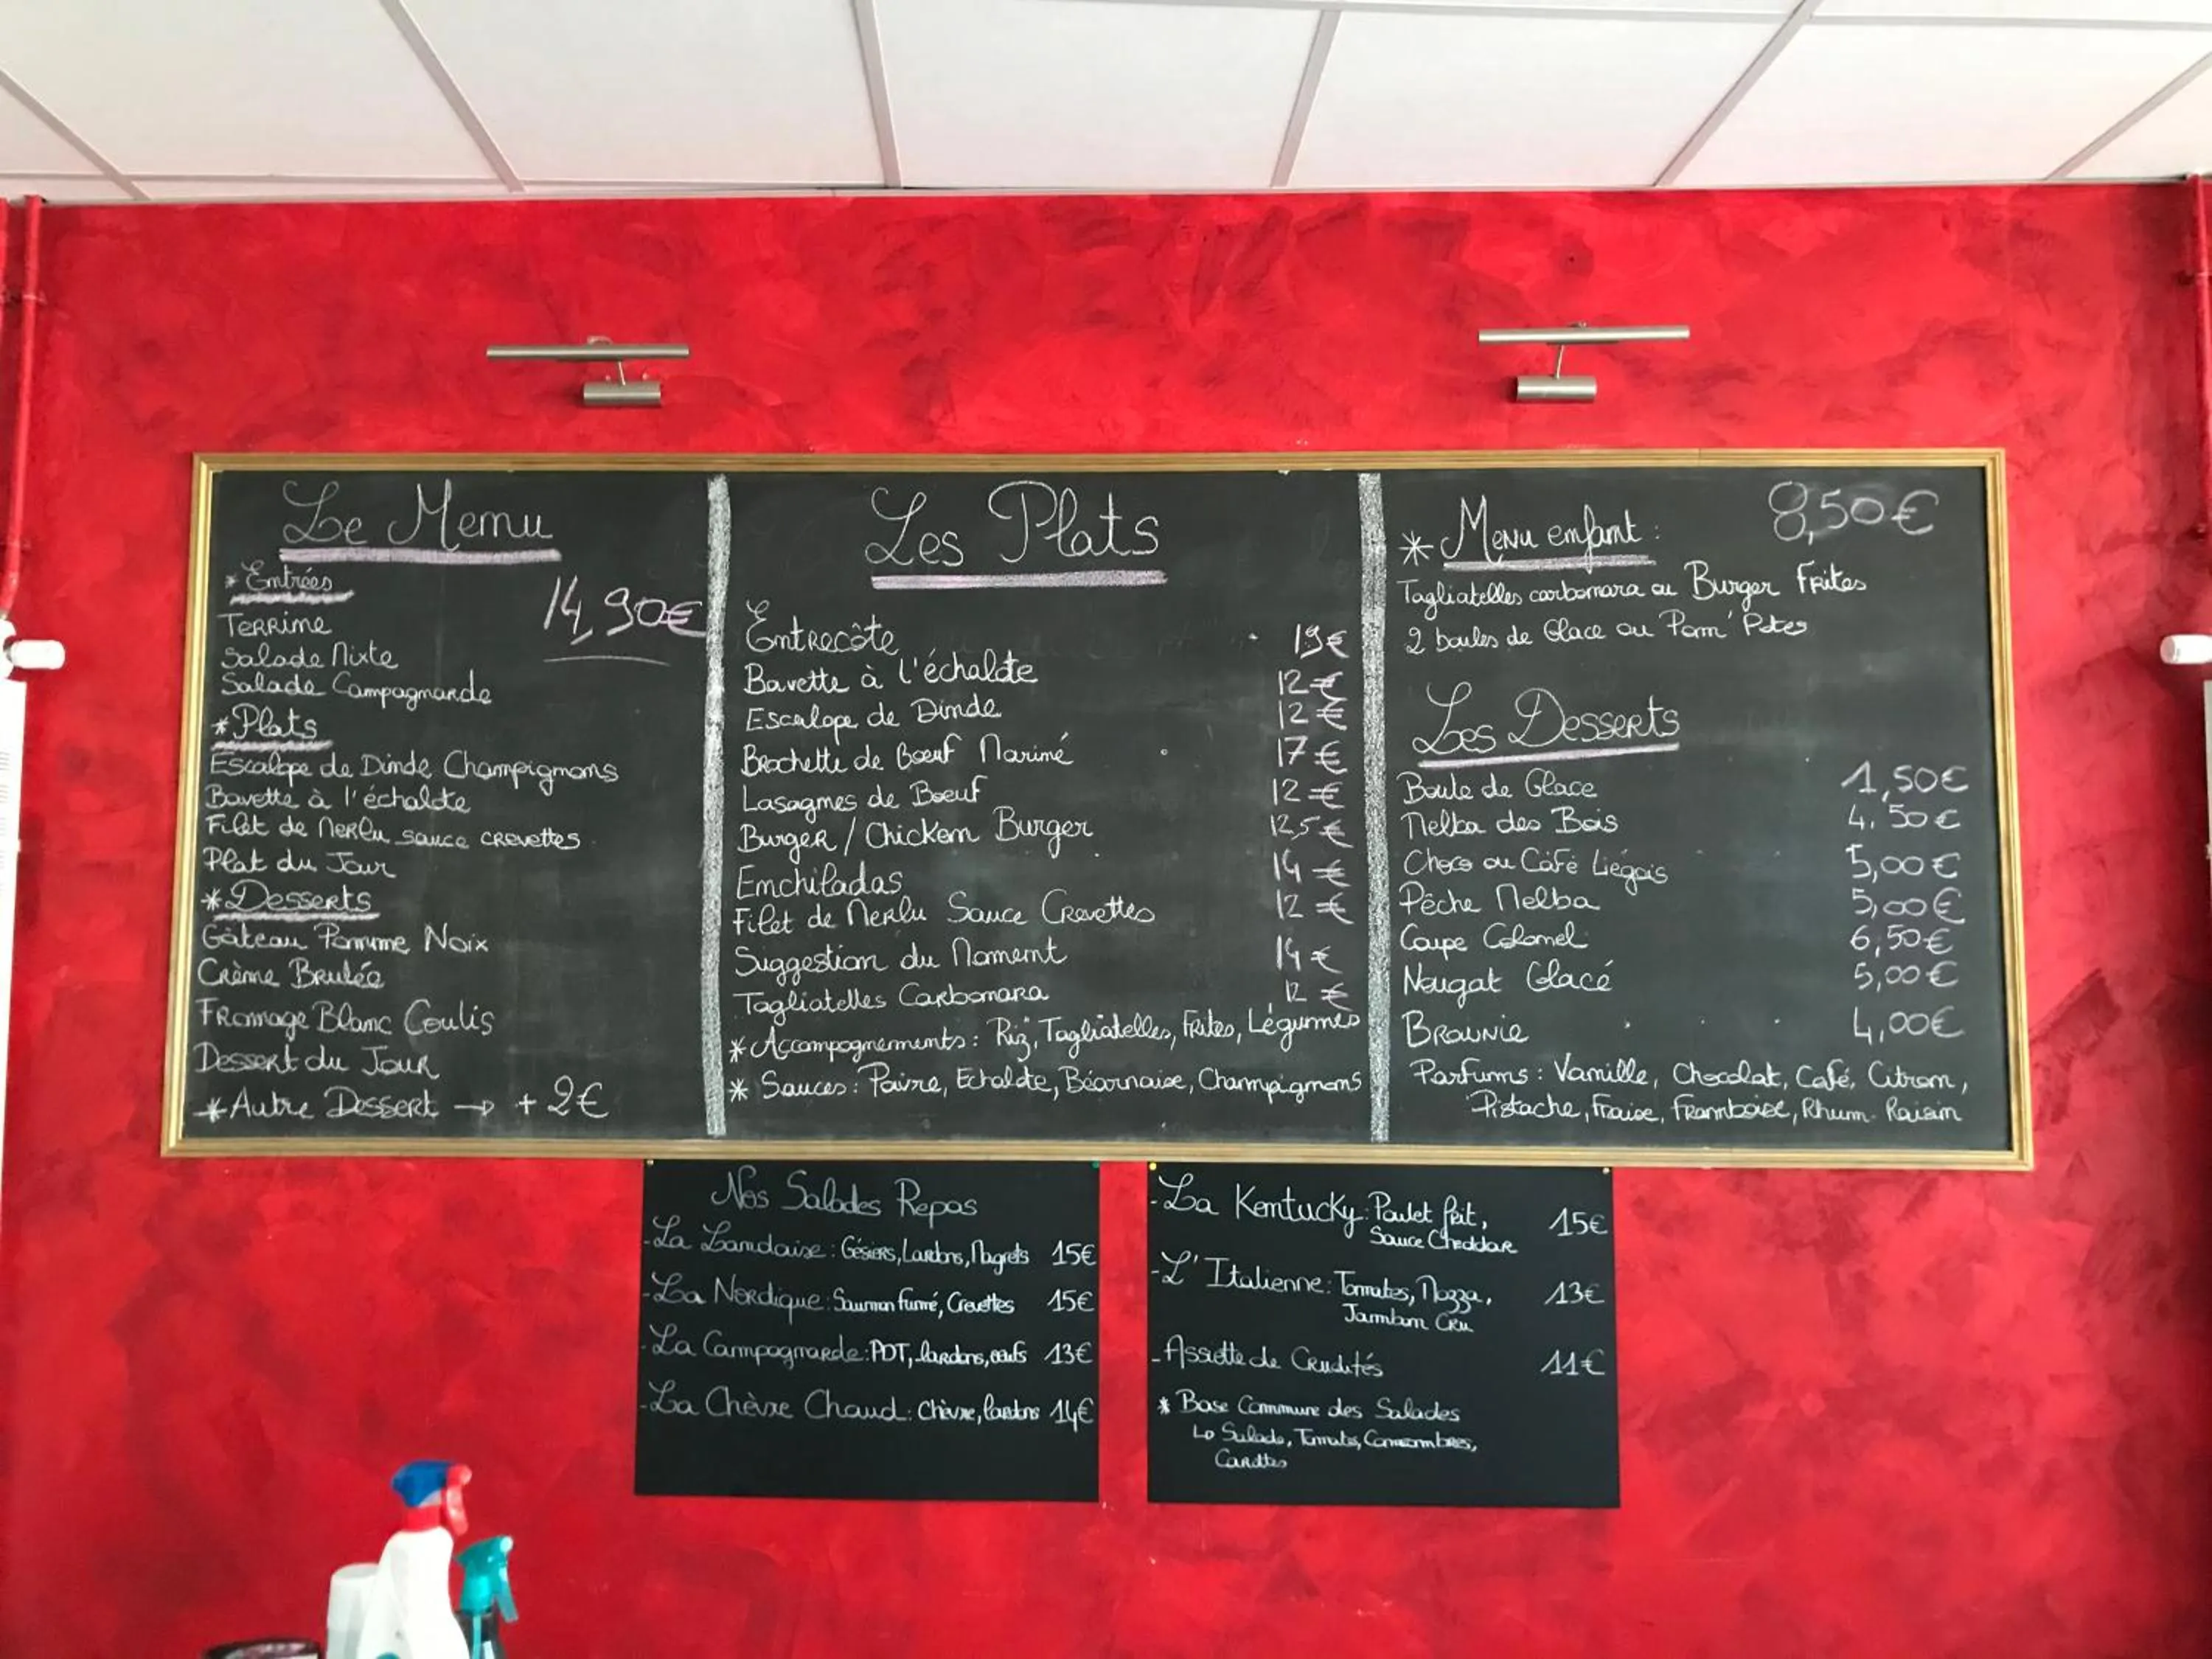 Le Menu
* Entrées
14,90€
Terrine
Salade Mixte
Salade Campagnarde
* Plats
Escalope de Dinde Champignons
Bavette à l'échalote
Filet de Merlu sauce crevettes
Plat du Jour
* Desserts
Gâteau Pomme Noix
Crème Brulée
Fromage Blanc Coulis
Dessert du Jour
* Autre Dessert → + 2€
Les Plats
Entrecôte 19€
Bavette à l'échalote 12€
Escalope de Dinde 12€
Brochette de Bœuf Mariné 17€
Lasagnes de Boeuf 12€
Burger / Chicken Burger 12,5€
Enchiladas 14€
Filet de Merlu Sauce Crevettes 12€
Suggestion du Moment 14€
Tagliatelles Carbonara 12€
* Accompagnements : Riz, Tagliatelles, Frites, Légumes
* Sauces : Poivre, Echalote, Béarnaise, Champignons
* Menu enfant : 8,50€
Tagliatelles carbonara ou Burger Frites
2 boules de Glace ou Pom' Potes
Les Desserts
Boule de Glace 1,50€
Melba des Bois 4,50€
Choco ou Café Liégois 5,00€
Pêche Melba 5,00€
Coupe Colonel 6,50€
Nougat Glacé 5,00€
Brownie 4,00€
Parfums : Vanille, Chocolat, Café, Citron,
Pistache, Fraise, Framboise, Rhum-Raisin
Nos Salades Repas
- La Landaise : Gésiers, Lardons, Magrets 15€
- La Nordique : Saumon fumé, Crevettes 15€
- La Campagnarde : PDT, lardons, oeufs 13€
- La Chèvre Chaud : Chèvre, lardons 14€
- La Kentucky : Poulet frit, 15€
Sauce Cheddar
- L'Italienne : Tomates, Mozza, 13€
Jambon Cru
- Assiette de Crudités 11€
* Base Commune des Salades
↳ Salade, Tomates, Concombres,
Carottes